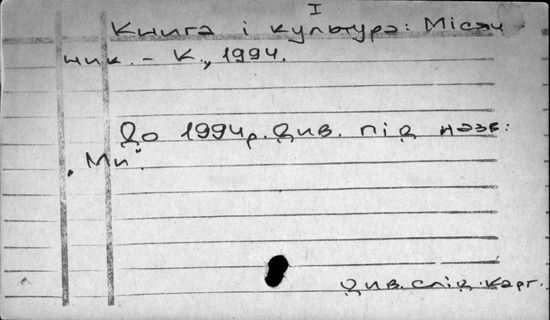 I
Книга і культура: Місяч
ник. – К., 1994.
До 1994р. Див. під назв:
„Ми".
Див. слід. карт.